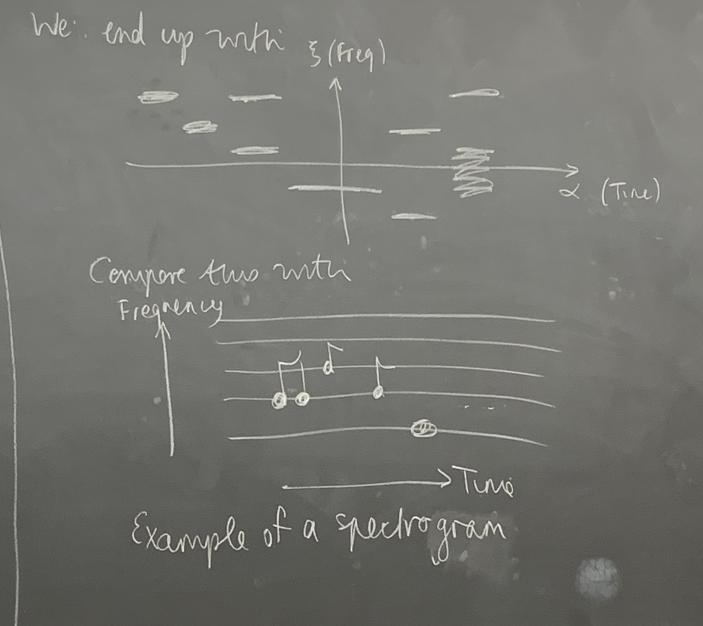 We: end up with
ξ (Freq)
α (Time)
Compare this with
Frequency
Time
Example of a spectrogram